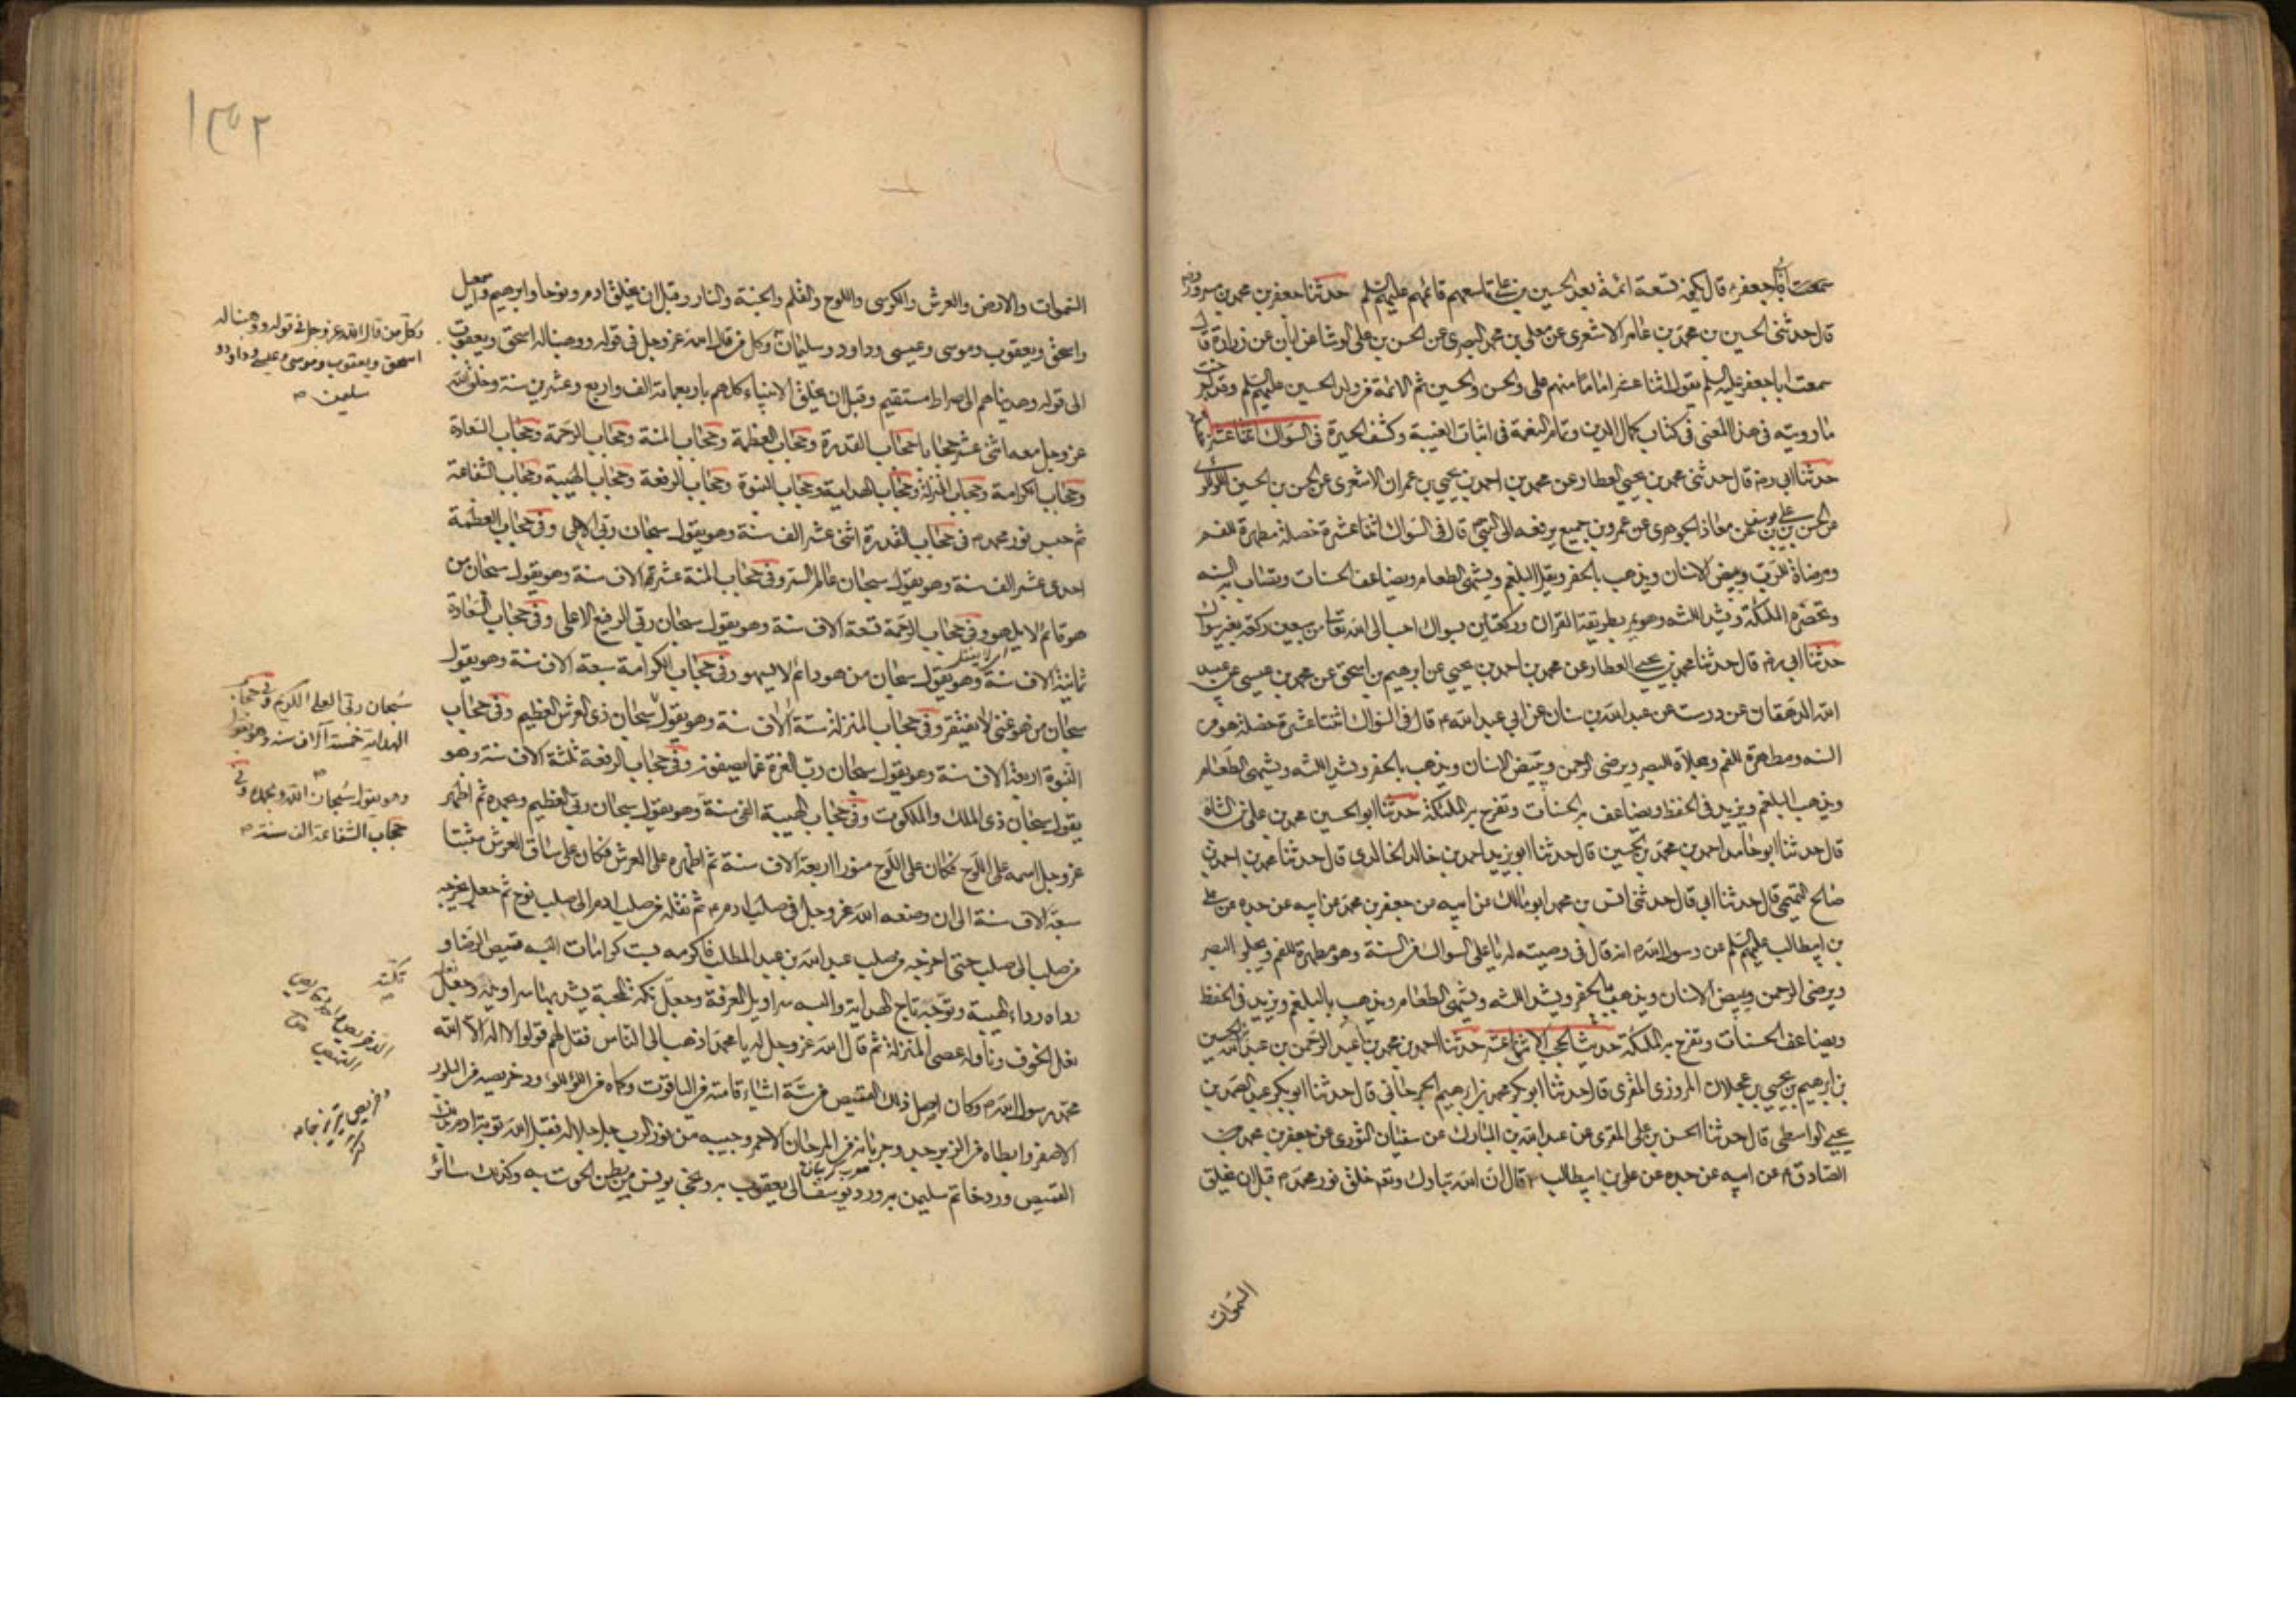 سمعت أبا جعفر ع قال يكون تسعة ائمة بعد الحسين بن علي تاسعهم قائمهم عليهم السلم حدثنا جعفر بن محمد بن مسرور رضه
قال حدثني الحسين بن محمد بن عامر الاشعري عن معلى بن محمد البصري عن الحسن بن علي الوشا عن أبان عن زرارة قال
سمعت ابا جعفر عليه السلم يقول اثنا عشر اماما منهم علي والحسن والحسين ثم الائمة من ولد الحسين عليهم السلم وقد اخرجت
ما رويته في هذا المعنى في كتاب كمال الدين وتمام النعمة في اثبات الغيبة وكشف الحيرة في السواك اثنا عشرة
حدثنا ابي رضه قال حدثني محمد بن يحيى العطار عن محمد بن احمد بن يحيى بن عمران الاشعري عن الحسن بن الحسين اللؤلؤي
عن الحسن بن علي بن يوسف عن معاذ الجوهري عن عمرو بن جميع يرفعه الى النبي ص قال في السواك اثنتا عشرة خصلة مطهرة للفم
ومرضاة للرب ويبيض الاسنان ويذهب بالحفر ويقل البلغم ويشهي الطعام ويضاعف الحسنات ويصاب به السنه
وتحضره الملئكة ويشد اللثه وهو يمر بطريقة القران وركعتين بسواك احب الى الله تعالى من سبعين ركعة بغير سواك
حدثنا ابي رضه قال حدثنا محمد بن يحيى العطار عن محمد بن احمد بن يحيى عن ابرهيم بن اسحق عن محمد بن عيسى عن عبيد
الله الدهقان عن درست عن عبد الله بن سنان عن ابي عبد الله ع قال في السواك اثنتا عشرة خصلة هو من
السنه ومطهرة للفم ومجلاة للبصر ويرضى الرحمن ويبيض الاسنان ويذهب بالحفر ويشد اللثه ويشهي الطعام
ويذهب البلغم ويزيد في الحفظ ويضاعف به الحسنات وتفرح به الملئكة حدثنا ابو الحسين محمد بن علي بن الشاه
قال حدثنا ابو حامد احمد بن محمد بن الحسين قال حدثنا ابو يزيد احمد بن خالد الخالدي قال حدثنا محمد بن احمد بن
صالح التميمي قال حدثنا ابي قال حدثني انس بن محمد ابو مالك عن ابيه عن جعفر بن محمد عن ابيه عن جده عن علي
بن ابيطالب عليهم السلم عن رسول الله ص انه قال في وصيته له يا علي السواك من السنة وهو مطهرة للفم ويجلو البصر
ويرضى الرحمن ويبيض الاسنان ويذهب بالحفر ويشد اللثه ويشهي الطعام ويذهب بالبلغم ويزيد في الحفظ
ويضاعف الحسنات وتفرح به الملئكة حديث الحجب الاثنا عشر حدثنا احمد بن محمد بن عبد الرحمن بن عبد الله بن الحسين
بن ابرهيم بن يحيى بن عجلان المروزي المقري قال حدثنا ابو بكر محمد بن ابرهيم الجرجاني قال حدثنا ابو بكر عبد الصمد بن
يحيى الواسطي قال حدثنا الحسن بن علي المقري عن عبد الله بن المبارك عن سفيان الثوري عن جعفر بن محمد
الصادق ع عن ابيه عن جده عن علي بن ابيطالب ع قال ان الله تبارك وتعه خلق نور محمد ص قبل ان يخلق
السموات
١٣٢
السموات والارض والعرش والكرسي واللوح والقلم والجنة والنار وقبل ان يخلق ادم ونوحا وابرهيم واسمعيل
واسحق ويعقوب وموسى وعيسى وداود وسليمان وكل من قال الله عز وجل في قوله ووهبنا له اسحق ويعقوب
الى قوله وهديناهم الى صراط مستقيم وقبل ان يخلق الانبياء كلهم باربعمائة الف واربع وعشرين سنة وخلق الله
عز وجل معه اثني عشر حجابا حجاب القدرة وحجاب العظمة وحجاب المنة وحجاب الرحمة وحجاب السعادة
وحجاب الكرامة وحجاب المنزلة وحجاب الهداية وحجاب النبوة وحجاب الرفعة وحجاب الهيبة وحجاب الشفاعة
ثم حبس نور محمد ص في حجاب القدرة اثني عشر الف سنة وهو يقول سبحان ربي الاعلى وفي حجاب العظمة
احدى عشر الف سنة وهو يقول سبحان عالم السر وفي حجاب المنة عشرة الاف سنة وهو يقول سبحان من
هو قائم لا يلهو وفي حجاب الرحمة تسعة الاف سنة وهو يقول سبحان ربي الرفيع الاعلى وفي حجاب السعادة
ثمانية الاف سنة وهو يقول سبحان من هو دائم لا يسهو وفي حجاب الكرامة سبعة الاف سنة وهو يقول
سبحان من هو غني لا يفتقر وفي حجاب المنزلة ستة الاف سنة وهو يقول سبحان ذي العرش العظيم وفي حجاب
النبوة اربعة الاف سنة وهو يقول سبحان رب العزة عما يصفون وفي حجاب الرفعة ثلثة الاف سنة وهو
يقول سبحان ذي الملك والملكوت وفي حجاب الهيبة الفي سنة وهو يقول سبحان ربي العظيم وبحمده ثم اظهر
عز وجل اسمه على اللوح فكان على اللوح منورا اربعة الاف سنة ثم اظهره على العرش فكان على ساق العرش مثبتا
سبعة الاف سنة الى ان وضعه الله عز وجل في صلب ادم ع ثم نقله من صلب ادم الى صلب نوح ثم جعل يخرجه
من صلب الى صلب حتى اخرجه من صلب عبد الله بن عبد المطلب فاكرمه بست كرامات البسه قميص الرضا و
رداه رداء الهيبة وتوجه بتاج الهداية والبسه سراويل المعرفة وجعل تكته المحبة يشد بها سراويله وجعل
نعل الخوف وناوله عصى المنزلة ثم قال الله عز وجل له يا محمد اذهب الى الناس فقل لهم قولوا لا اله الا الله
محمد رسول الله ص وكان اصل ذلك القميص من ستة اشياء قامته من الياقوت وكماه من اللؤلؤ ودخريصه من البلور
الاصفر وابطاه من الزبرجد وجربانه من المرجان الاحمر وجيبه من نور الرب جل جلاله فقبل الله توبة ادم بذلك
القميص ورد خاتم سليمن به ورد يوسف الى يعقوب به ونجى يونس من بطن الحوت به وكذلك سائر
وكل من قال الله عز وجل في قوله ووهبنا له
اسحق ويعقوب وموسى وعيسى وداود و
سليمن
سبحان ربي العلي الكريم وفي حجاب
الهداية خمسة آلاف سنة وهو يقول
وهو يقول سبحان الله وبحمده وفي
حجاب الشفاعة الف سنة
تكته
القميص